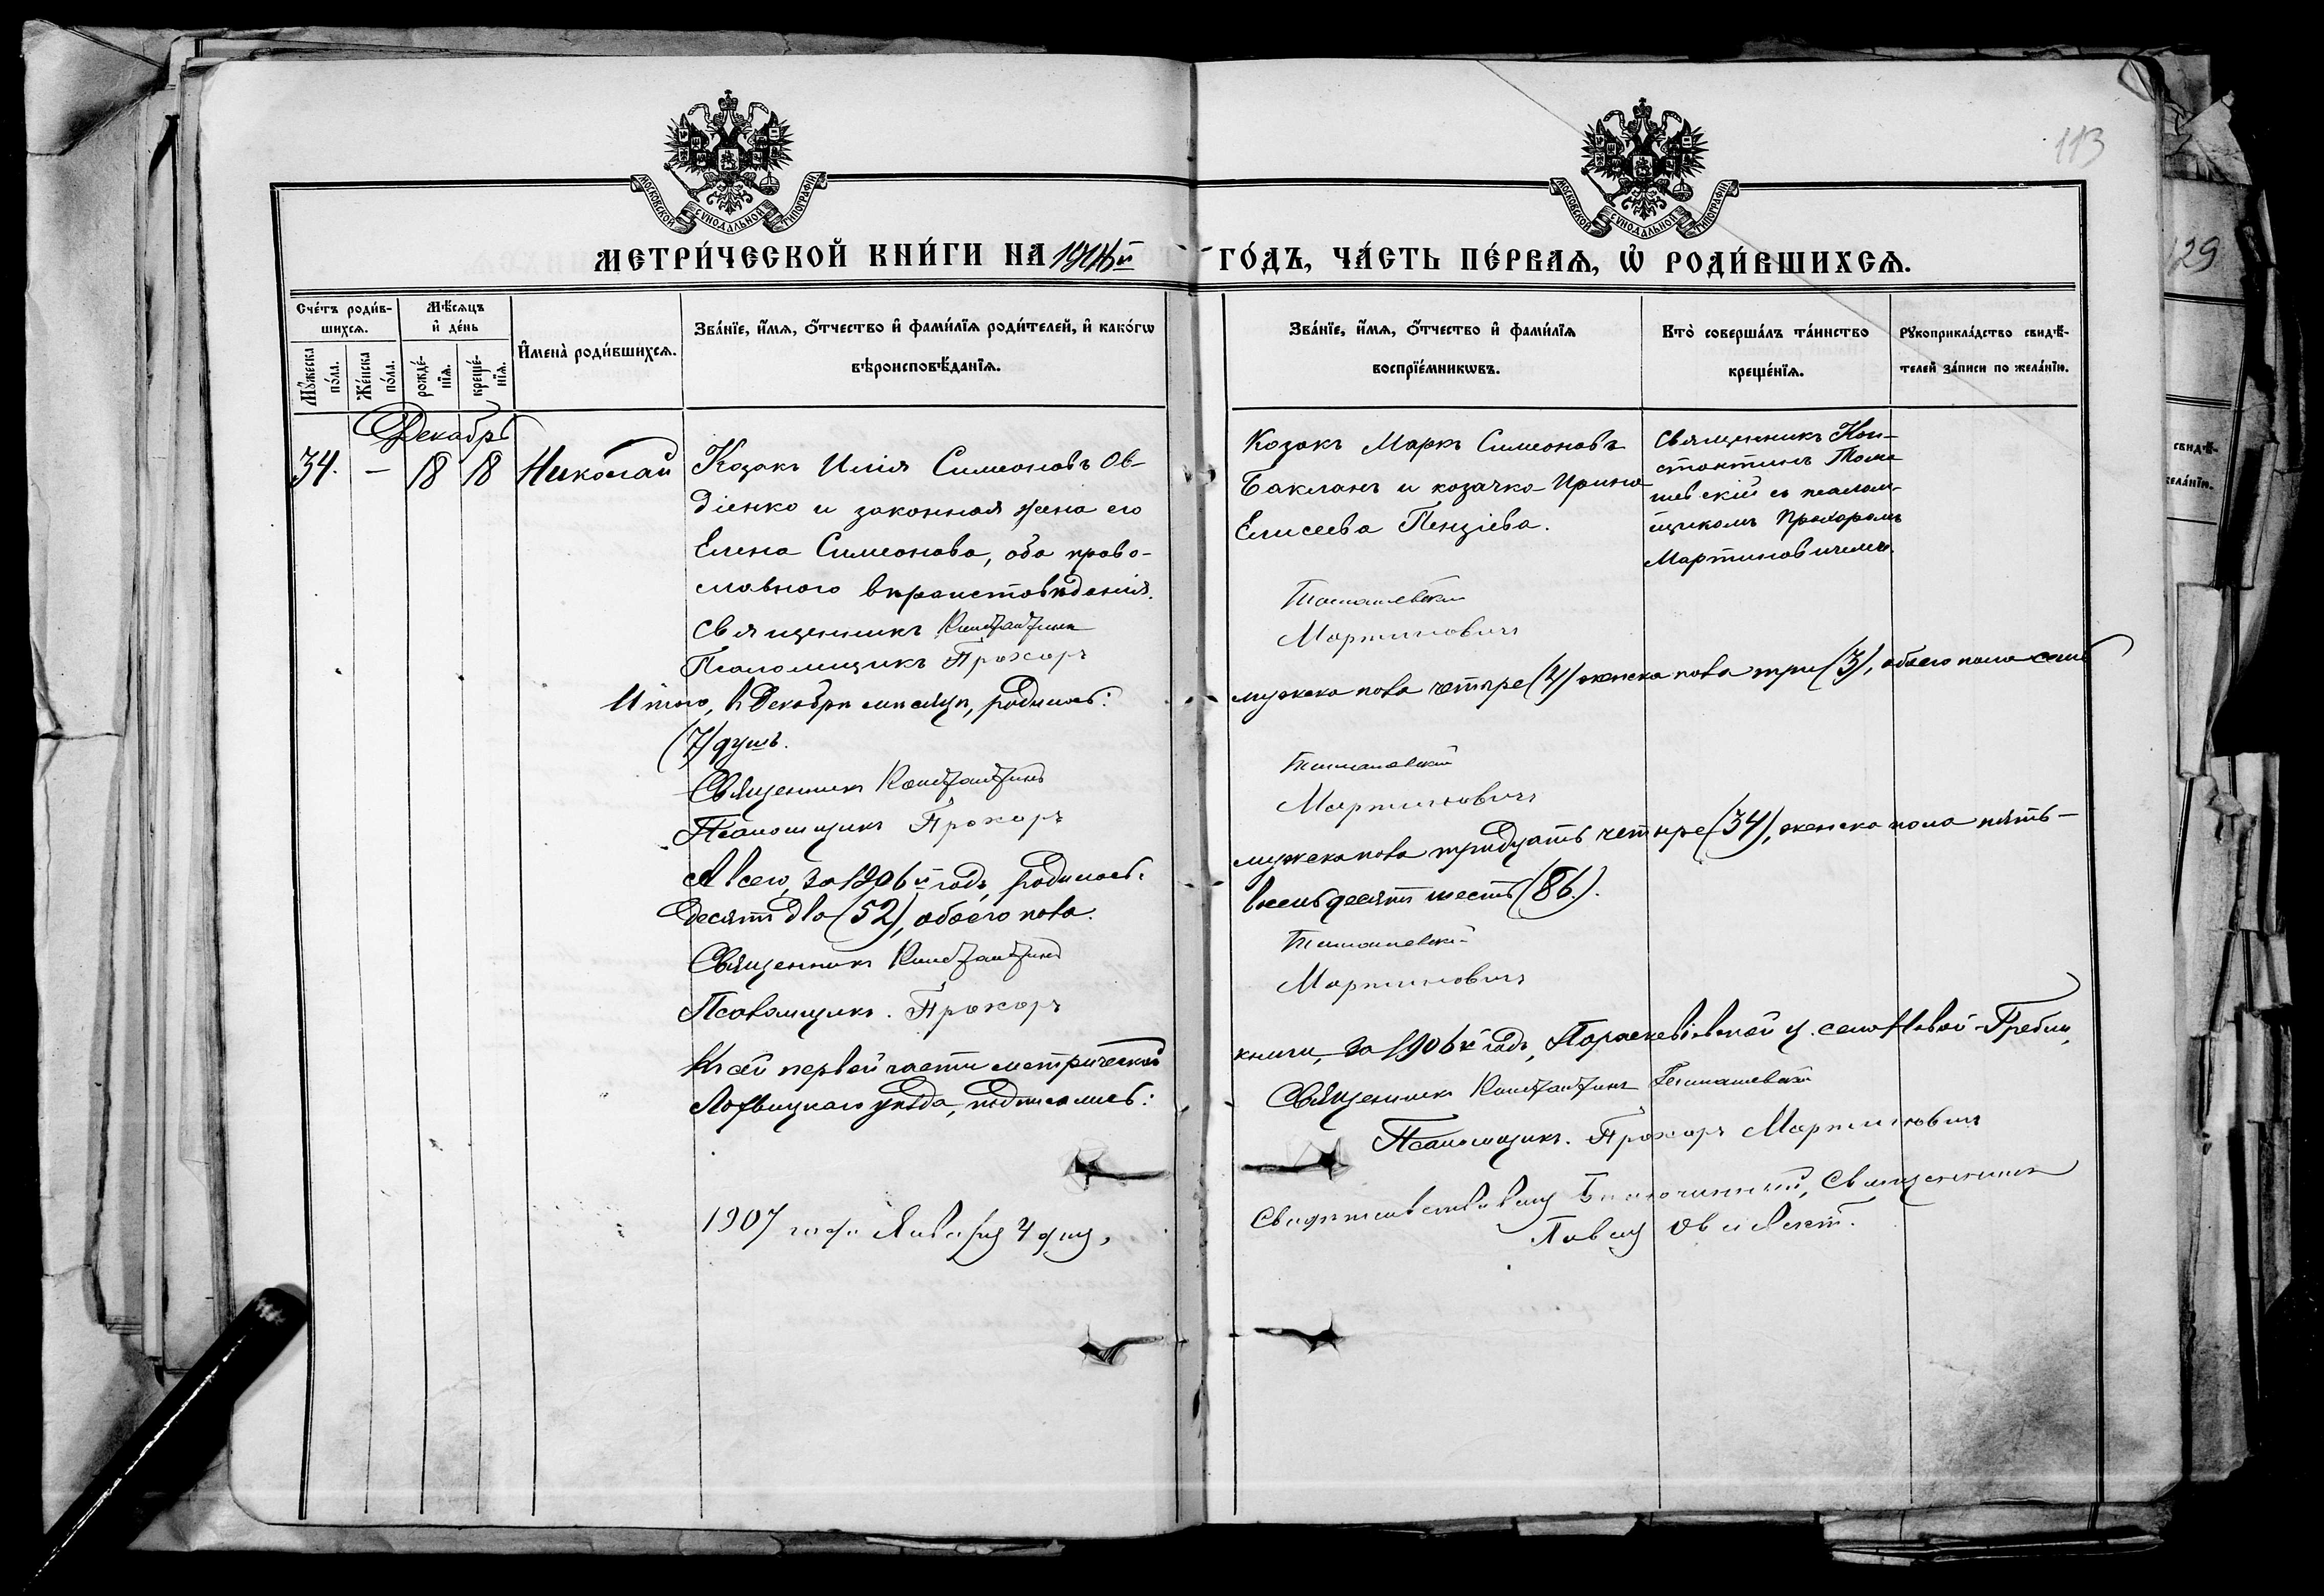 113
МОСКОВСКОЙ СѴНОДАЛЬНОЙ ТИПОГРАФІИ
МОСКОВСКОЙ СѴНОДАЛЬНОЙ ТИПОГРАФІИ
МЕТРИ́ЧЕСКОЙ КНИ́ГИ НА
ГО́ДЪ, ЧА́СТЬ ПЕ́РВАѦ, Ѡ҆ РОДИ́ВШИХСѦ.
129
Сче́тъ роди́в-
шихсѧ.
Мꙋ́жеска по́ла.
Же́нска по́ла.
Мѣ́сѧцъ
и҆ де́нь
рожде́-
нїѧ.
креще́-
нїѧ.
И҆мена̀ роди́вшихсѧ.
Зва́нїе, и҆́мѧ, ѻ҆́тчество и҆ фами́лїѧ роди́телей, и҆ како́гѡ
вѣроисповѣ́данїѧ.
Зва́нїе, и҆́мѧ, ѻ҆́тчество и҆ фами́лїѧ
воспрїе́мникѡвъ.
Кто̀ соверша́лъ та́инство
креще́нїѧ.
Рꙋкоприкла́дство свидѣ́-
телей за́писи по жела́нїю.
Декабрь
34. — 18 18 Николай
Козакъ Илія Симеоновъ Ов-
діенко и законная жена его
Елена Симеонова, оба право-
славного вѣроисповѣданія.
Козакъ Маркъ Симеоновъ
Бакланъ и козачка Ирина
Елисеева Пензіева.
Священникъ Кон-
стантинъ Тома-
шевскій съ псалом-
щикомъ Прохоромъ
Мартиновичемъ.
Священникъ Константинъ Томашевскій
Псаломщикъ Прохоръ Мартиновичъ
Итого, въ Декабрѣ мѣсяцѣ, родилось: мужеска пола четыре (4) женска пола три (3), обоего пола семь
(7) душъ.
Священникъ Константинъ Томашевскій
Псаломщикъ Прохоръ Мартиновичъ
А всего, за 1906й годъ, родилось: мужеска пола тридцать четыре (34), женска пола пять-
десятъ два (52), обоего пола восемьдесятъ шесть (86).
Священникъ Константинъ Томашевскій
Псаломщикъ. Прохоръ Мартиновичъ
Къ сей первой части метрической книги, за 1906й годъ, Параскевіевской ц. села Новой-Гребли,
Лохвицкаго уѣзда, подписались: Священникъ Константинъ Томашевскій
Псаломщикъ. Прохоръ Мартиновичъ
1907 года Января 4 дня, Свидѣтельствовалъ Благочинный, Священникъ
Павелъ